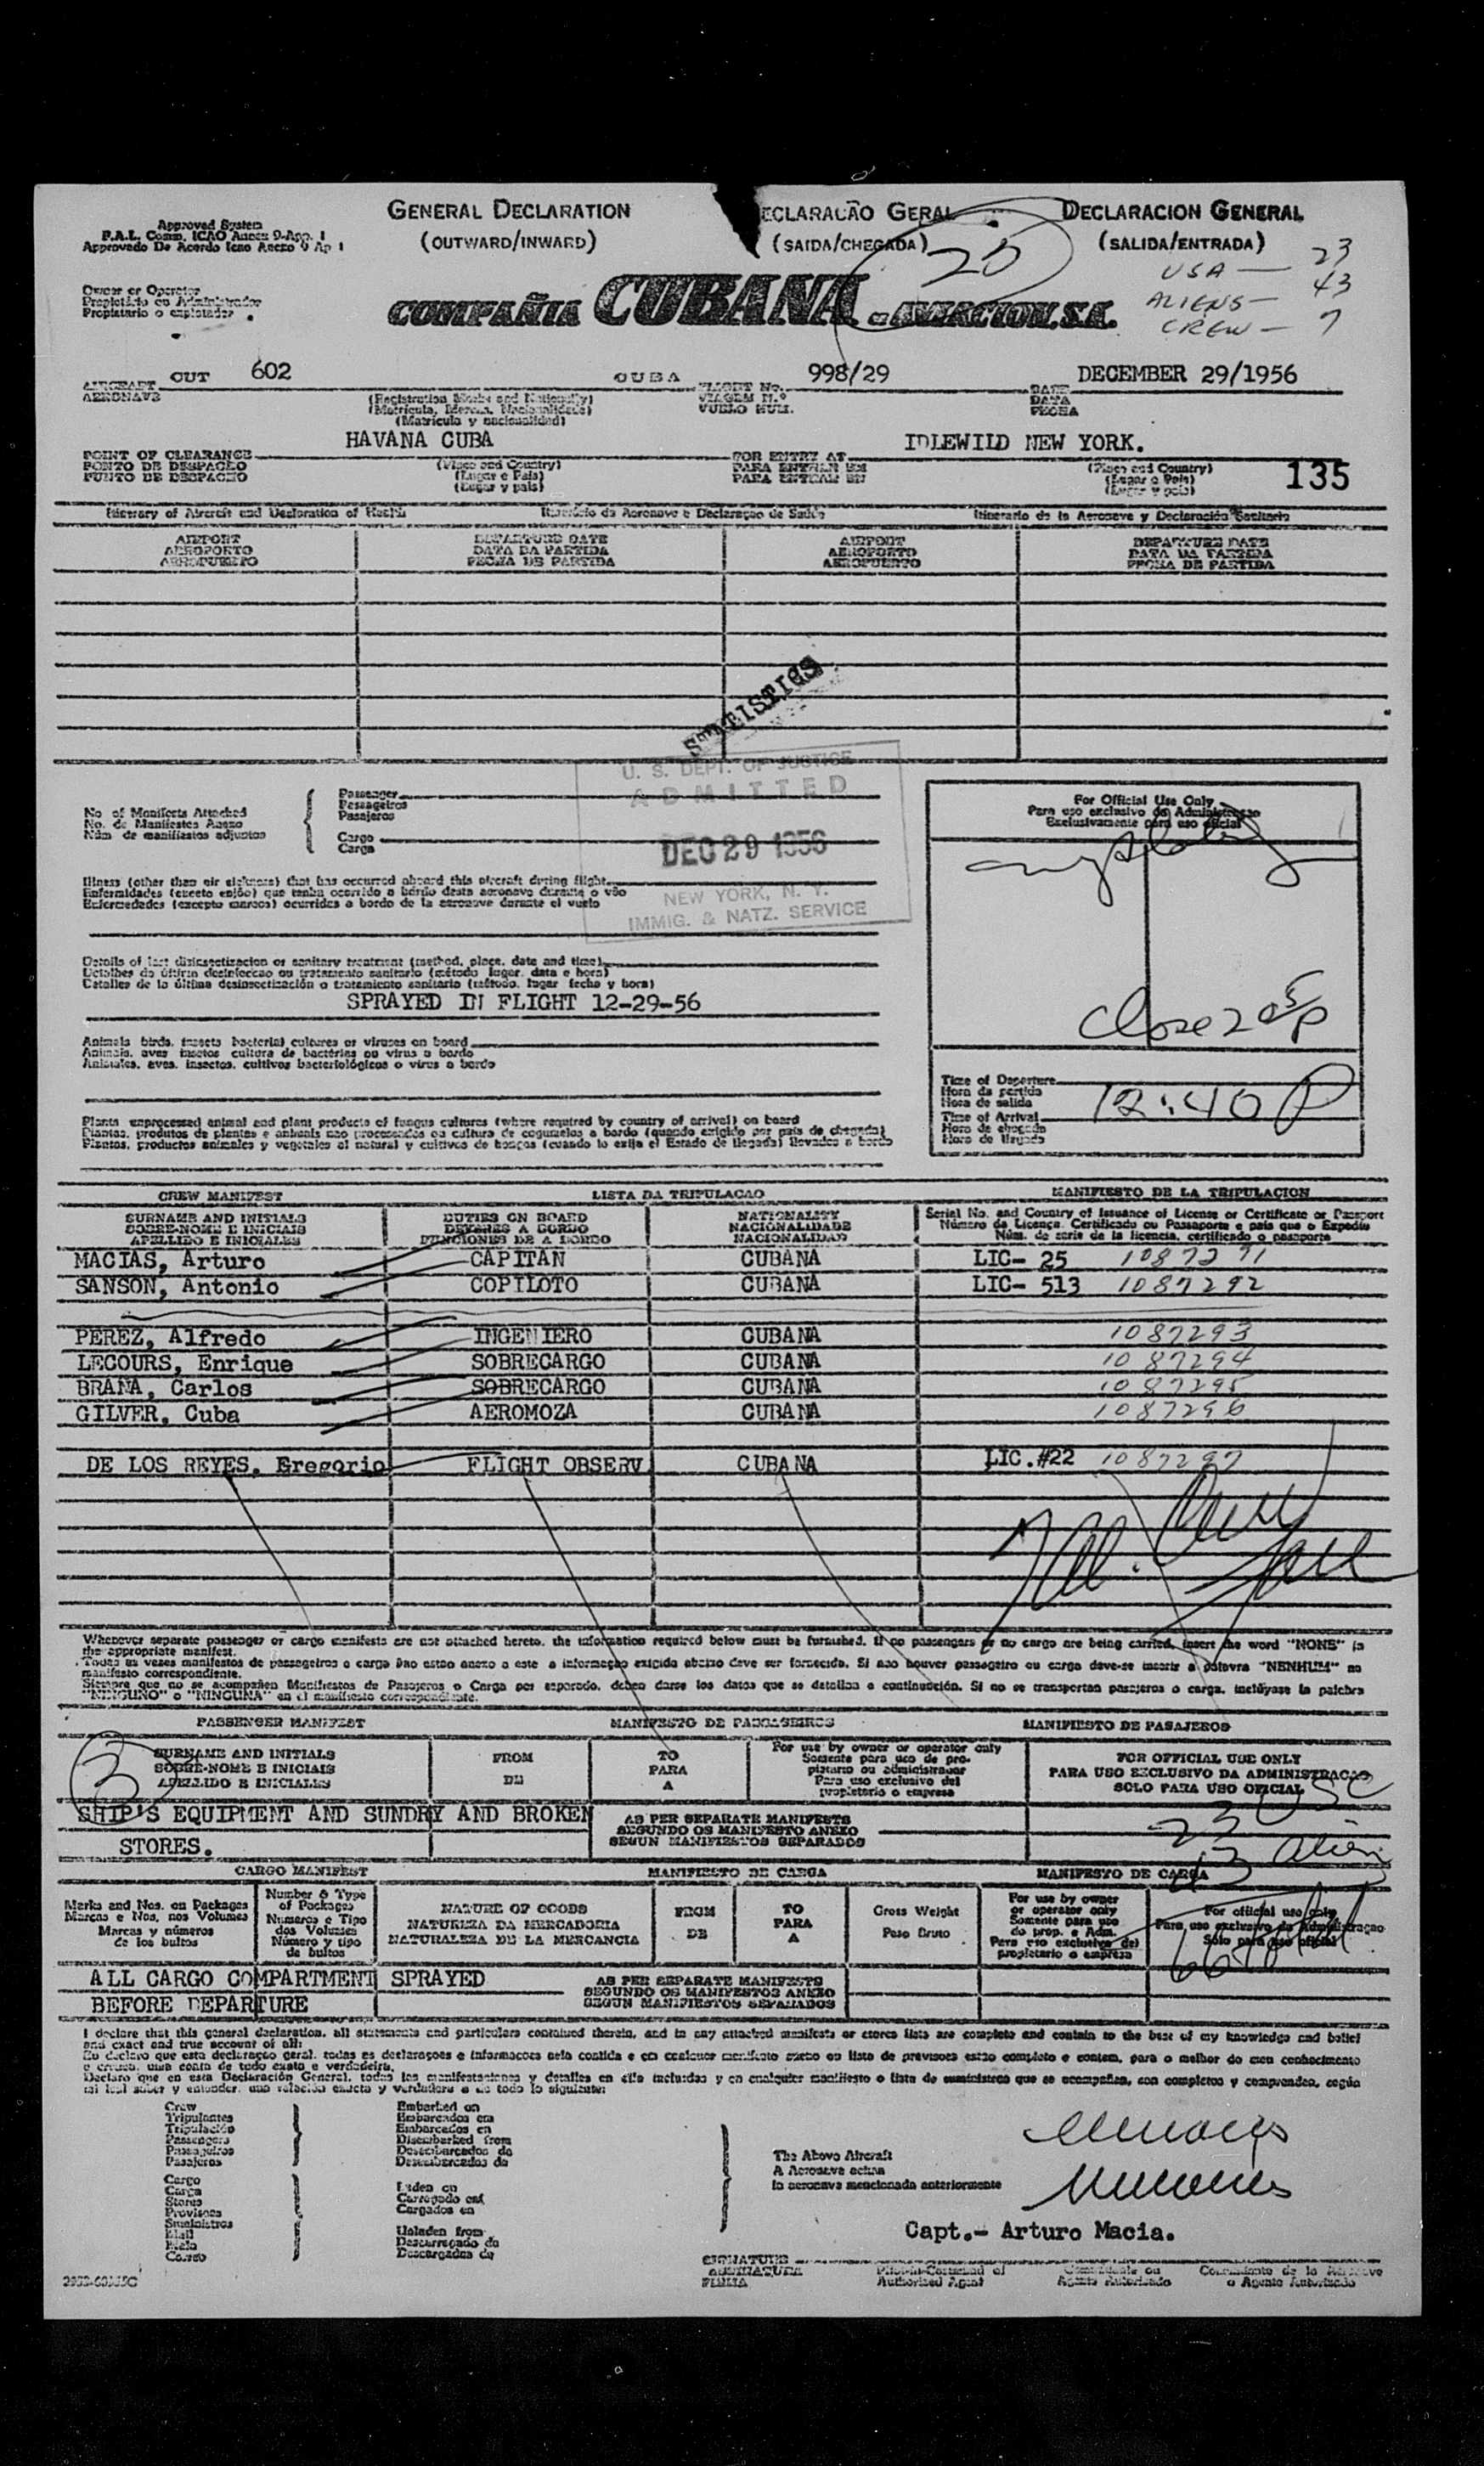 Approved System
P.A.L. Comm. ICAO Annex 9-App. 1
Approvado De Acordo Icao Anexo 9 Ap 1
GENERAL DECLARATION
(OUTWARD/INWARD)
ECLARACÃO GERAL
(SAIDA/CHEGADA)
DECLARACION GENERAL
(SALIDA/ENTRADA)
20
USA — 23
ALIENS — 43
CREW — 7
Owner or Operator
Propietário ou Administrador
Propietario o explotador
COMPAÑIA CUBANA DE AVIACION, S.A.
AIRCRAFT
AERONAVE
CUT 602
CUBA
(Registration Marks and Nationality)
(Matricula, Marcas, Nacionalidade)
(Matricula y nacionalidad)
FLIGHT No.
VIAGEM N.º
VUELO NUM.
998/29
DATE
DATA
FECHA
DECEMBER 29/1956
POINT OF CLEARANCE
PONTO DE DESPACHO
PUNTO DE DESPACHO
HAVANA CUBA
(Place and Country)
(Lugar e Pais)
(Lugar y pais)
FOR ENTRY AT
PARA ENTRAR EM
PARA ENTRAR EN
IDLEWILD NEW YORK.
(Place and Country)
(Lugar e Pais)
(Lugar y pais)
135
Itinerary of Aircraft and Declaration of Health
Itinerário da Aeronave e Declaraçao de Saúde
Itinerario de la Aeronave y Declaración Sanitaria
AIRPORT
AEROPORTO
AEROPUERTO
DEPARTURE DATE
DATA DA PARTIDA
FECHA DE PARTIDA
AIRPORT
AEROPORTO
AEROPUERTO
DEPARTURE DATE
DATA DA PARTIDA
FECHA DE PARTIDA
STATISTICS
U. S. DEPT. OF JUSTICE
ADMITTED
DEC 29 1956
NEW YORK, N. Y.
IMMIG. & NATZ. SERVICE
No of Manifests Attached
No. de Manifestes Anexo
Núm de manifiestos adjuntos
Passenger
Passageiros
Pasajeros
Cargo
Carga
For Official Use Only
Para uso exclusivo da Administraçao
Exclusivamente para uso oficial
Illness (other than air sickness) that has occurred aboard this aircraft during flight
Enfermidades (exceto enjôo) que tenha ocorrido a bordo desta aeronave durante o vôo
Enfermedades (excepto mareos) ocurridas a bordo de la aeronave durante el vuelo
Details of last disinsectizacion or sanitary treatment (method, place, date and time)
Detalhes da última desinfeccao ou tratamento sanitario (método lugar, data e hora)
Detalles de la última desinsectización o tratamiento sanitario (método, lugar fecha y hora)
SPRAYED IN FLIGHT 12-29-56
Close 205p
Animals birds, insects bacterial cultures or viruses on board
Animais, aves insetos cultura de bactérias ou virus a bordo
Animales, aves, insectos, cultivos bacteriológicos o virus a bordo
Time of Departure
Hora da partida
Hora de salida
Time of Arrival
Hora de chegada
Hora de llegada
12:40 P
Plants unprocessed animal and plant products of fungus cultures (where required by country of arrival) on board
Plantas, produtos de plantas e animais nao processados ou cultura de cogumelos a bordo (quando exigido por pais de chegada)
Plantas, productos animales y vegetales al natural y cultivos de hongos (cuando lo exija el Estado de llegada) llevados a bordo
CREW MANIFEST
LISTA DA TRIPULACAO
MANIFIESTO DE LA TRIPULACION
SURNAME AND INITIALS
SOBRE-NOME E INICIAIS
APELLIDO E INICIALES
DUTIES ON BOARD
DEVERES A BORDO
FUNCIONES DE A BORDO
NATIONALITY
NACIONALIDADE
NACIONALIDAD
Serial No. and Country of Issuance of License or Certificate or Passport
Número da Licença, Certificado ou Passaporte e pais que o Expediu
Núm. de serie de la licencia, certificado o pasaporte
MACIAS, Arturo CAPITAN CUBANA LIC- 25 1087291
SANSON, Antonio COPILOTO CUBANA LIC- 513 1087292
PEREZ, Alfredo INGENIERO CUBANA 1087293
LECOURS, Enrique SOBRECARGO CUBANA 1087294
BRAÑA, Carlos SOBRECARGO CUBANA 1087295
GILVER, Cuba AEROMOZA CUBANA 1087296
DE LOS REYES, Gregorio FLIGHT OBSERV CUBANA LIC.#22 1087297
Whenever separate passenger or cargo manifests are not attached hereto, the information required below must be furnished. If no passengers or no cargo are being carried, insert the word "NONE" in
the appropriate manifest.
Todas as vezes manifestos de passageiros o carga nao estao anexo a este a informaçao exigida abaixo deve ser fornecida. Si nao houver passageiro ou carga deve-se inserir a palavra "NENHUM" no
manifesto correspondiente.
Siempre que no se acompañen Manifiestos de Pasajeros o Carga por separado, deben darse los datos que se detallan a continuación. Si no se transportan pasajeros o carga, inclúyase la palabra
"NINGUNO" o "NINGUNA" en el manifiesto correspondiente.
PASSENGER MANIFEST
MANIFESTO DE PASSAGEIROS
MANIFIESTO DE PASAJEROS
3
SURNAME AND INITIALS
SOBRE-NOME E INICIAIS
APELLIDO E INICIALES
FROM
DE
TO
PARA
A
For use by owner or operator only
Somente para uso de pro-
pietario ou administrador
Para uso exclusivo del
propietario o empresa
FOR OFFICIAL USE ONLY
PARA USO EXCLUSIVO DA ADMINISTRAÇAO
SOLO PARA USO OFICIAL
SHIP'S EQUIPMENT AND SUNDRY AND BROKEN
STORES.
AS PER SEPARATE MANIFESTS
SEGUNDO OS MANIFESTO ANEXO
SEGUN MANIFIESTOS SEPARADOS
23 USC
43 Alien
66 total
CARGO MANIFEST
MANIFIESTO DE CARGA
MANIFESTO DE CARGA
Marks and Nos. on Packages
Marcas e Nos, nos Volumes
Marcas y números
de los bultos
Number & Type
of Packages
Numeros e Tipo
dos Volumes
Número y tipo
de bultos
NATURE OF GOODS
NATUREZA DA MERCADORIA
NATURALEZA DE LA MERCANCIA
FROM
DE
TO
PARA
A
Gross Weight
Peso Bruto
For use by owner
or operator only
Somente para uso
do prop. e Adm.
Para uso exclusivo del
propietario o empresa
For official use only
Para uso exclusivo da Administraçao
Sólo para uso oficial
ALL CARGO COMPARTMENT SPRAYED
BEFORE DEPARTURE
AS PER SEPARATE MANIFESTS
SEGUNDO OS MANIFESTOS ANEXO
SEGUN MANIFIESTOS SEPARADOS
I declare that this general declaration, all statements and particulars contained therein, and in any attached manifests or stores lists are complete and contain to the best of my knowledge and belief
and exact and true account of all:
Eu declaro que esta declaração geral, todas as declaraçoes e informacoes nela contida e em qualquer manifesto anexo ou lista de previsoes estao completo e contem, para o melhor do meu conhecimento
e crença, uma conta de todo exato e verdadeira.
Declaro que en esta Declaración General, todas las manifestaciones y detalles en ella incluidas y en cualquier manifiesto o lista de suministros que se acompañan, son completos y comprenden, según
mi leal saber y entender, una relación exacta y verdadera de todo lo siguiente:
Crew
Tripulantes
Tripulación
Passengers
Passageiros
Pasajeros
Embarked on
Embarcados em
Embarcados en
Disembarked from
Desembarcados do
Desembarcados de
Cargo
Carga
Stores
Provisoes
Suministros
Mail
Mala
Correo
Laden on
Carregado em
Cargados en
Unladen from
Descarregado do
Descargados de
The Above Aircraft
A Aeronave acima
la aeronave mencionada anteriormente
Capt.- Arturo Macia.
SIGNATURE
ASSINATURA
FIRMA
Pilot-in-Command of
Authorized Agent
Comandante ou
Agente Autorizado
Comandante de la Aeronave
o Agente Autorizado